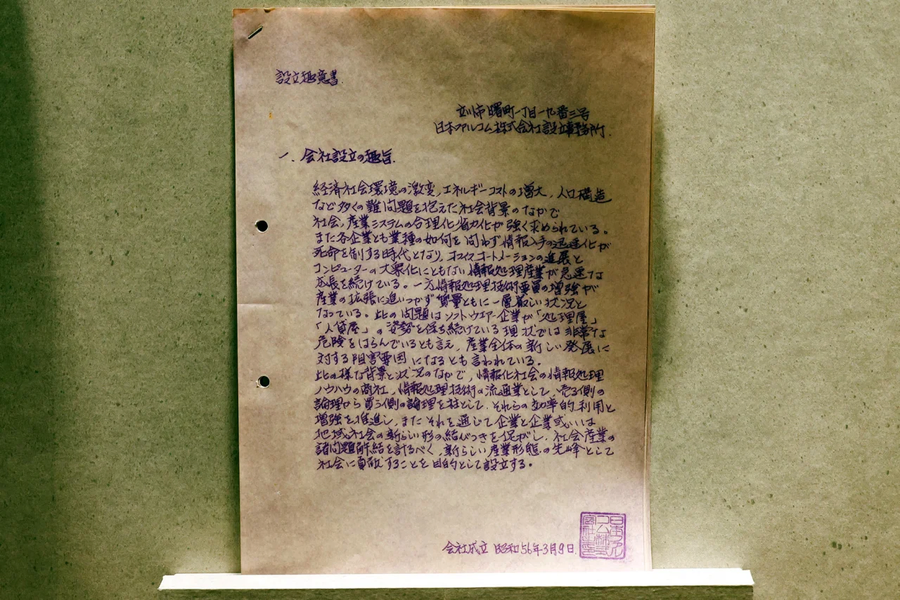 設立趣意書
立川市曙町一丁目一九番三号
日本ファルコム株式会社設立事務所
一. 会社設立の趣旨.
経済社会環境の激変, エネルギーコストの増大, 人口構造
など多くの難問題を抱えた社会背景のなかで
社会, 産業システムの合理化省力化が強く求められている。
また各企業とも業種の如何を問わず情報入手の迅速化が
死命を制する時代となり, オフィスオートメーションの進展と
コンピューターの大衆化にともない情報処理産業が急速な
成長を続けている。一方情報処理技術要員の増強が
産業の拡張に追いつかず質量ともに一層厳しい状況と
なっている。此の問題はソフトウエヤー企業が「処理屋」
「人貸屋」の姿勢を保ち続けている現状では非常な
危険をはらんでいるとも言え, 産業全体の新しい発展に
対する阻害要因になるとも言われている。
此の様な背景と状況のなかで, 情報化社会の情報処理
ノウハウの商社, 情報処理技術の流通業として, 売る側の
論理から買う側の論理を柱として, それらの効率的利用と
増強を推進し, またそれを通して企業と企業或いは
地域社会の新らしい形の結びつきを促がし, 社会産業の
諸問題解結を計るべく, 新らしい産業形態の先峰として
社会に貢献することを目的として設立する。
会社成立 昭和56年3月9日